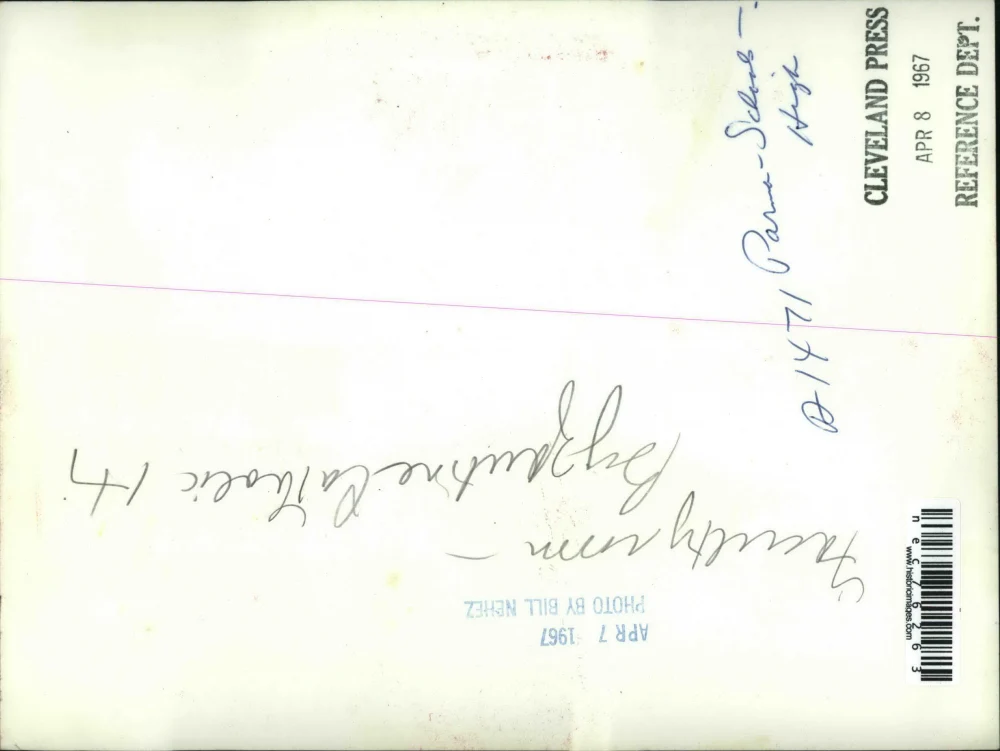 CLEVELAND PRESS
APR 8 1967
REFERENCE DEPT.
A1471 Parma-Schools-
High
APR 7 1967
PHOTO BY BILL NEHEZ
Faculty room -
Byzantine Catholic H
nec76263
www.historicimages.com